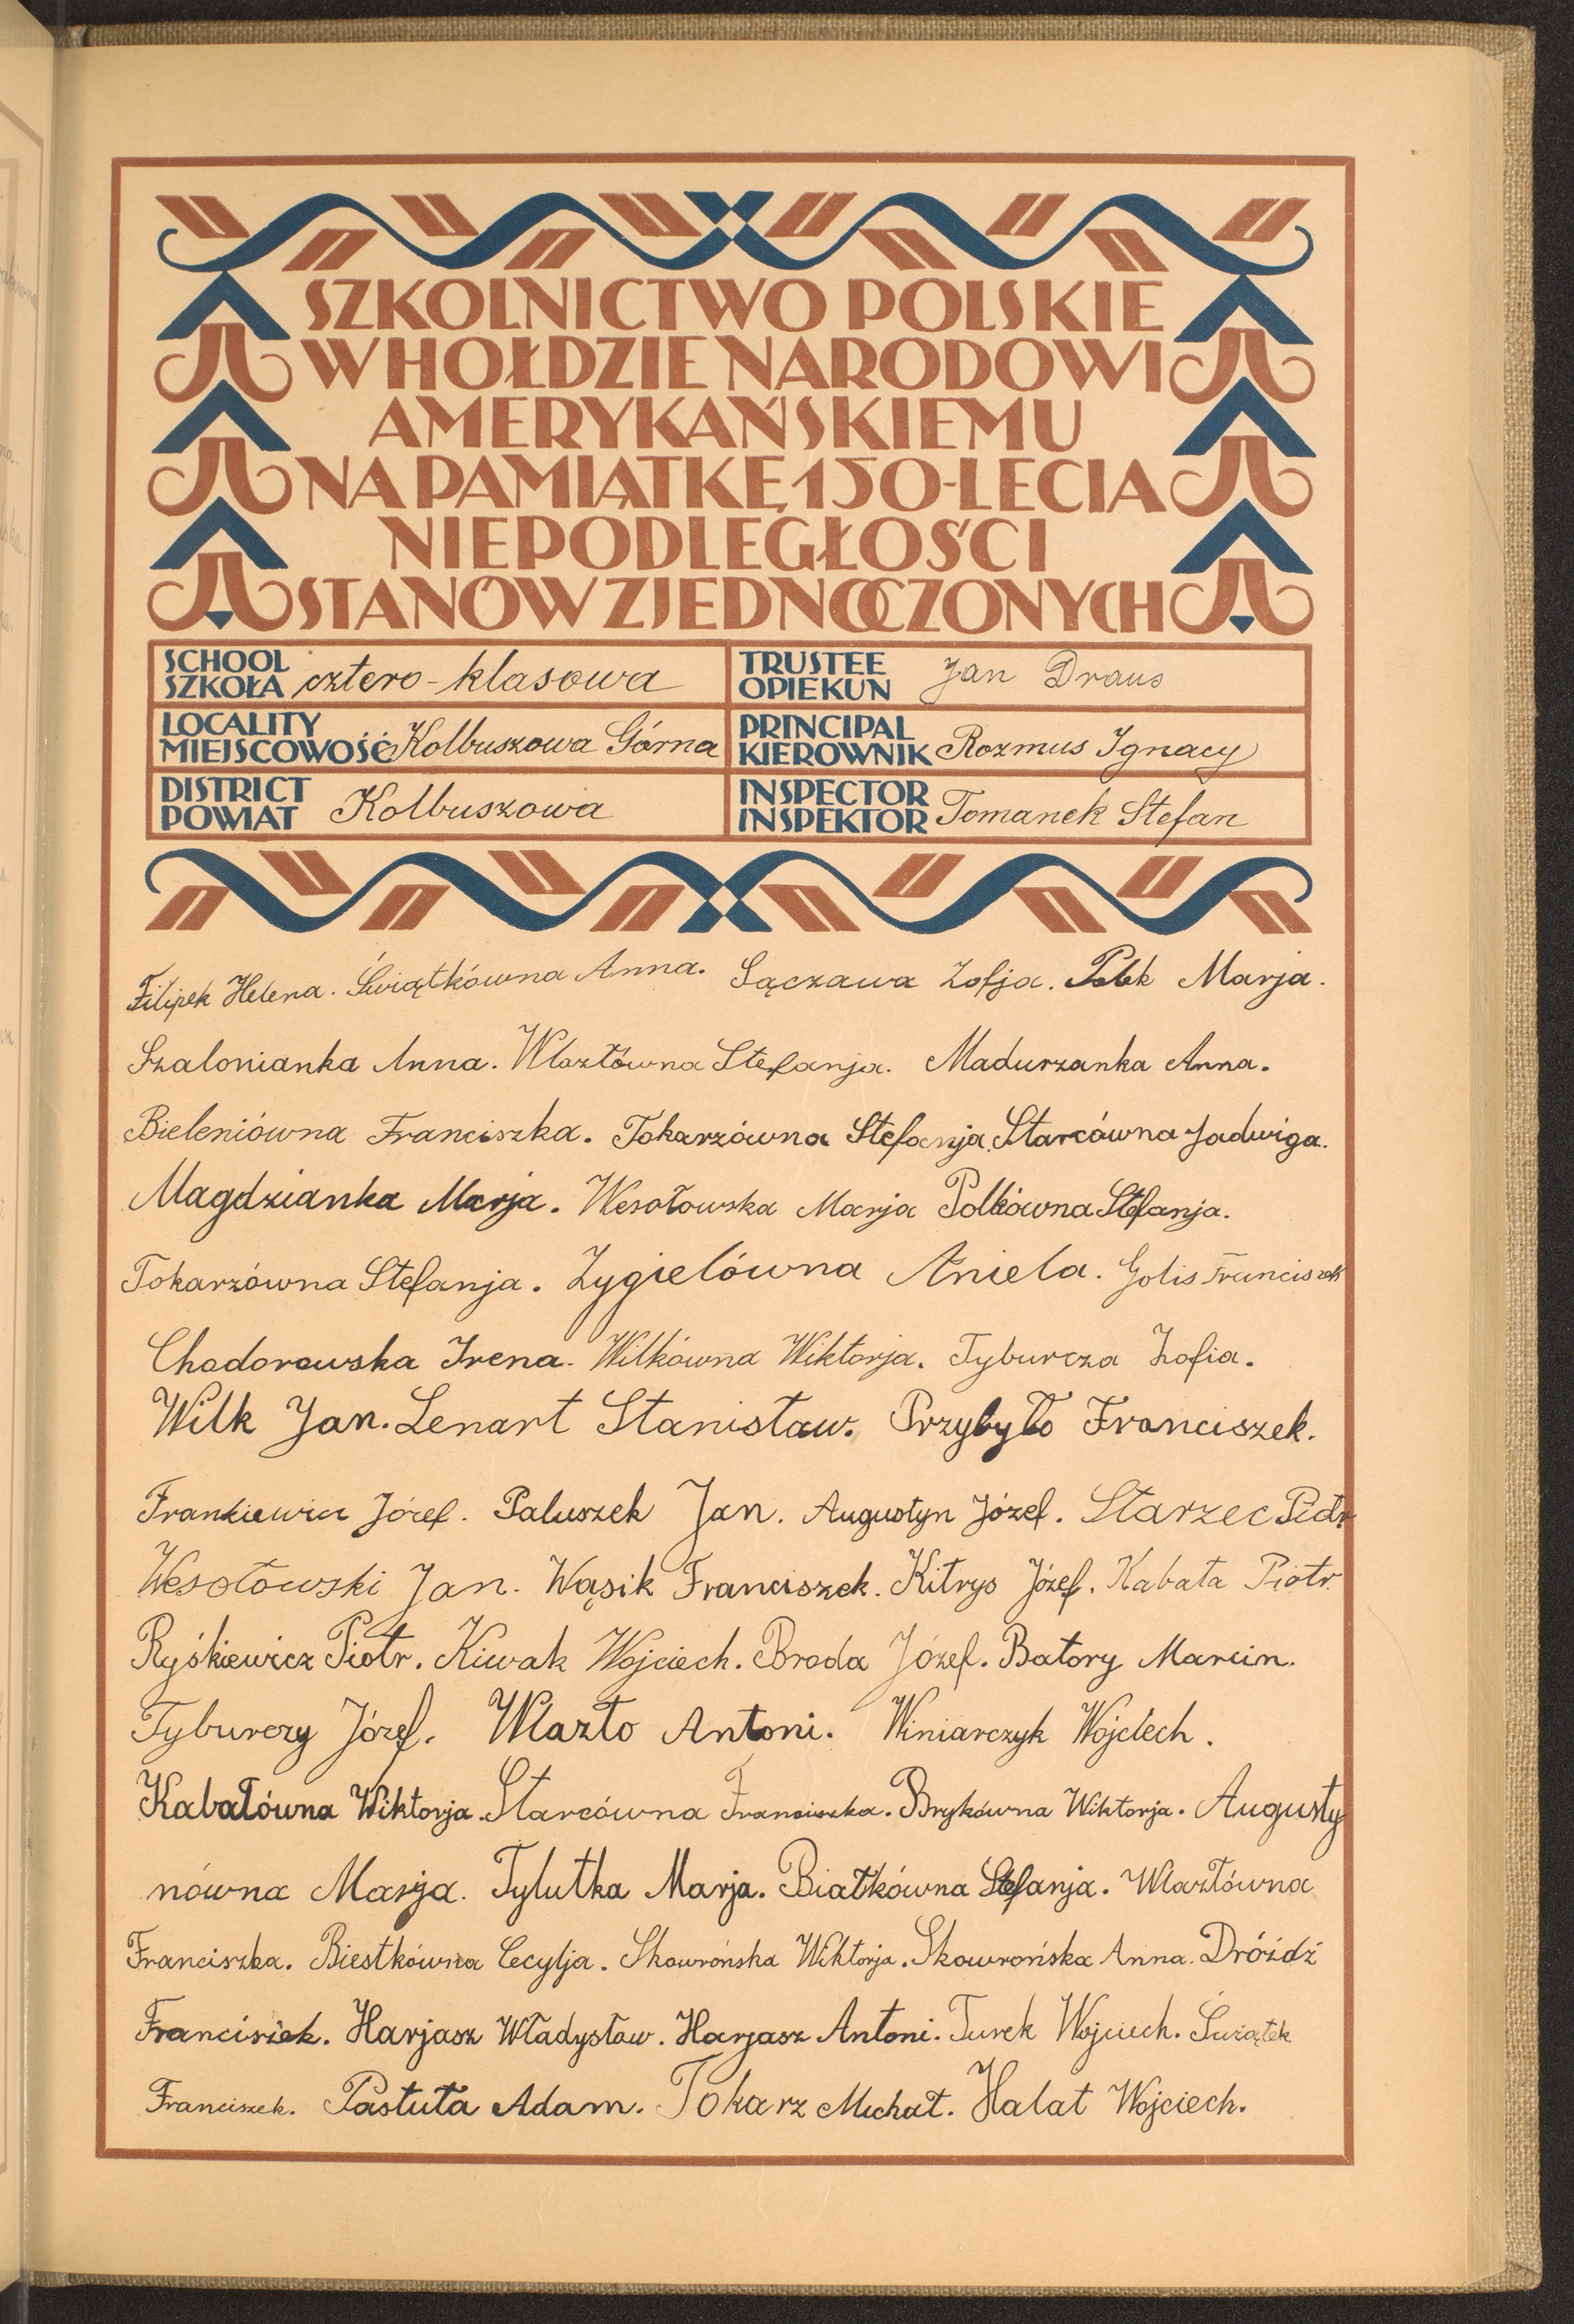 SZKOLNICTWO POLSKIE
W HOŁDZIE NARODOWI
AMERYKAŃSKIEMU
NA PAMIĄTKĘ 150-LECIA
NIEPODLEGŁOŚCI
STANÓW ZJEDNOCZONYCH
SCHOOL
SZKOŁA cztero-klasowa
TRUSTEE
OPIEKUN Jan Draus
LOCALITY
MIEJSCOWOŚĆ Kolbuszowa Górna
PRINCIPAL
KIEROWNIK Rozmus Ignacy
DISTRICT
POWIAT Kolbuszowa
INSPECTOR
INSPEKTOR Tomanek Stefan
Filipek Helena. Świątkówna Anna. Sączawa Zofja. Polek Marja.
Szalonianka Anna. Wlazłówna Stefanja. Madurzanka Anna.
Bieleniówna Franciszka. Tokarzówna Stefanja. Starcówna Jadwiga.
Magdzianka Marja. Wesołowska Marja Polkówna Stefanja.
Tokarzówna Stefanja. Zygielówna Aniela. Golis Franciszek
Chodorowska Irena. Wilkówna Wiktorja. Tyburcza Zofia.
Wilk Jan. Lenart Stanisław. Przybyło Franciszek.
Frankiewicz Józef. Paluszek Jan. Augustyn Józef. Starzec Piotr
Wesołowski Jan. Wąsik Franciszek. Kitrys Józef. Kabata Piotr.
Ryśkiewicz Piotr. Kiwak Wojciech. Broda Józef. Batory Marcin.
Tyburczy Józef. Wlazło Antoni. Winiarczyk Wojciech.
Kabatówna Wiktorja. Starcówna Franciszka. Brykówna Wiktorja. Augusty
nówna Marja. Tylutka Marja. Białkówna Stefanja. Wlazłówna
Franciszka. Biestkówna Cecylja. Skowrońska Wiktorja. Skowrońska Anna. Dróżdż
Franciszek. Harjasz Władysław. Harjasz Antoni. Turek Wojciech. Świątek
Franciszek. Pastuła Adam. Tokarz Michał. Halat Wojciech.